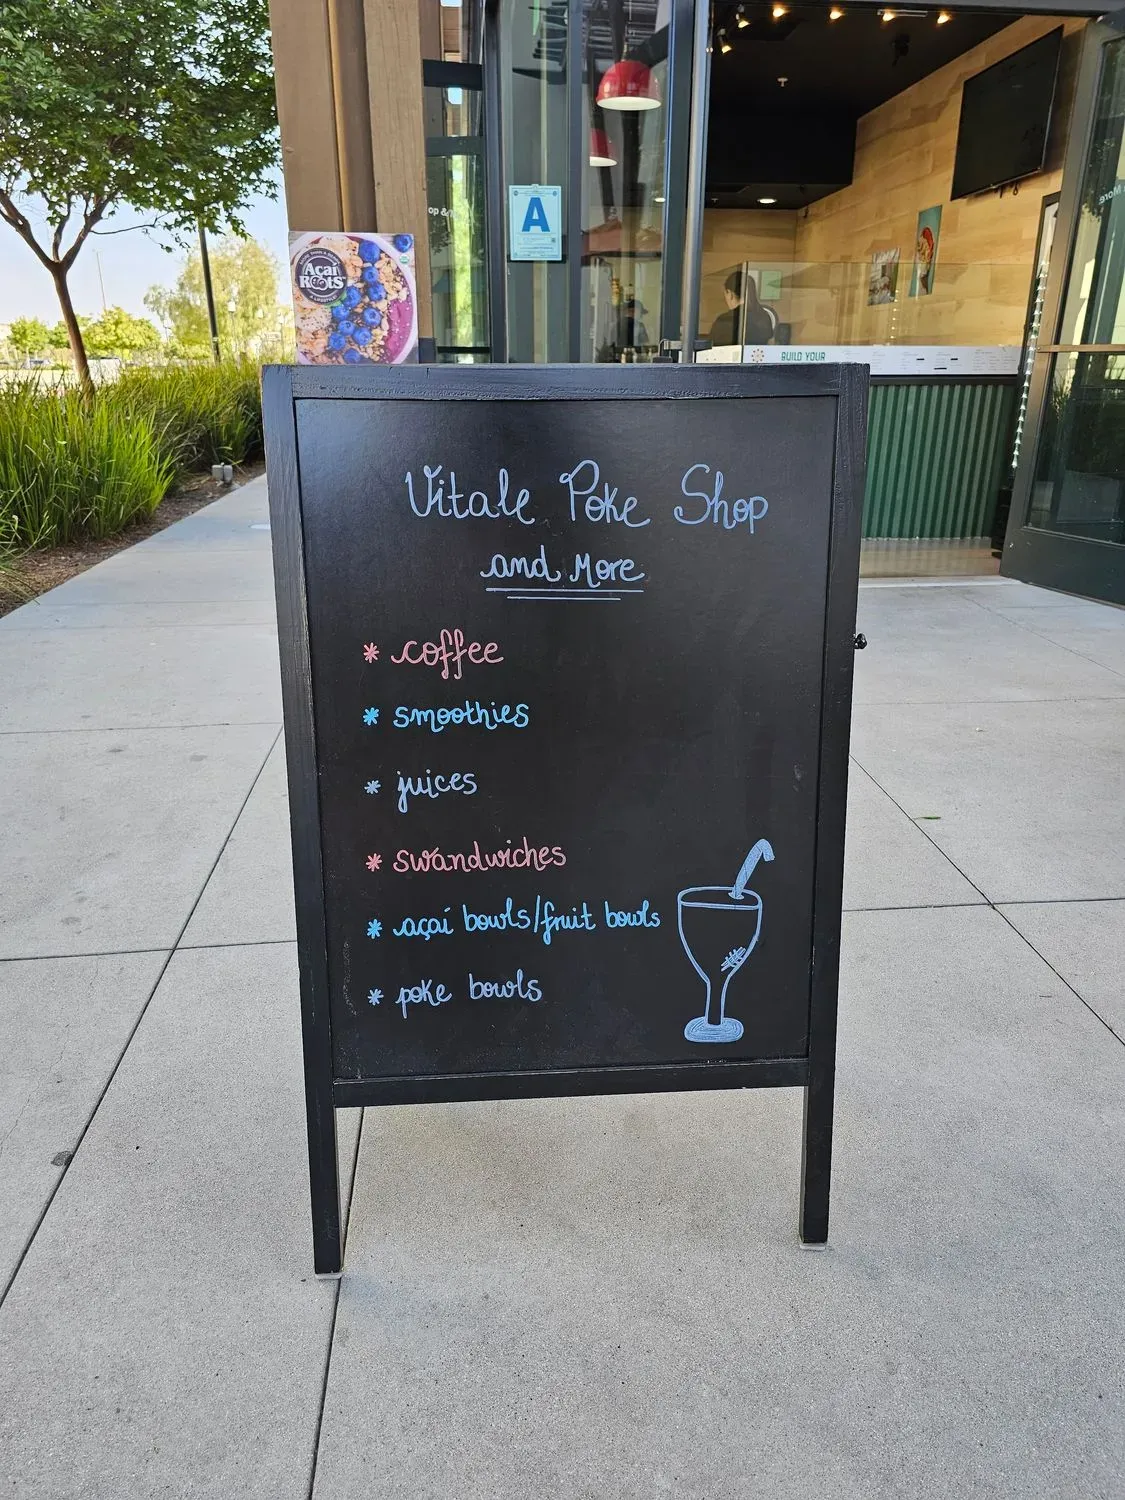 A
Açaí
ROOTS
BUILD YOUR
Vitale Poke Shop
and More
* coffee
* smoothies
* juices
* swandwiches
* açaí bowls/fruit bowls
* poke bowls